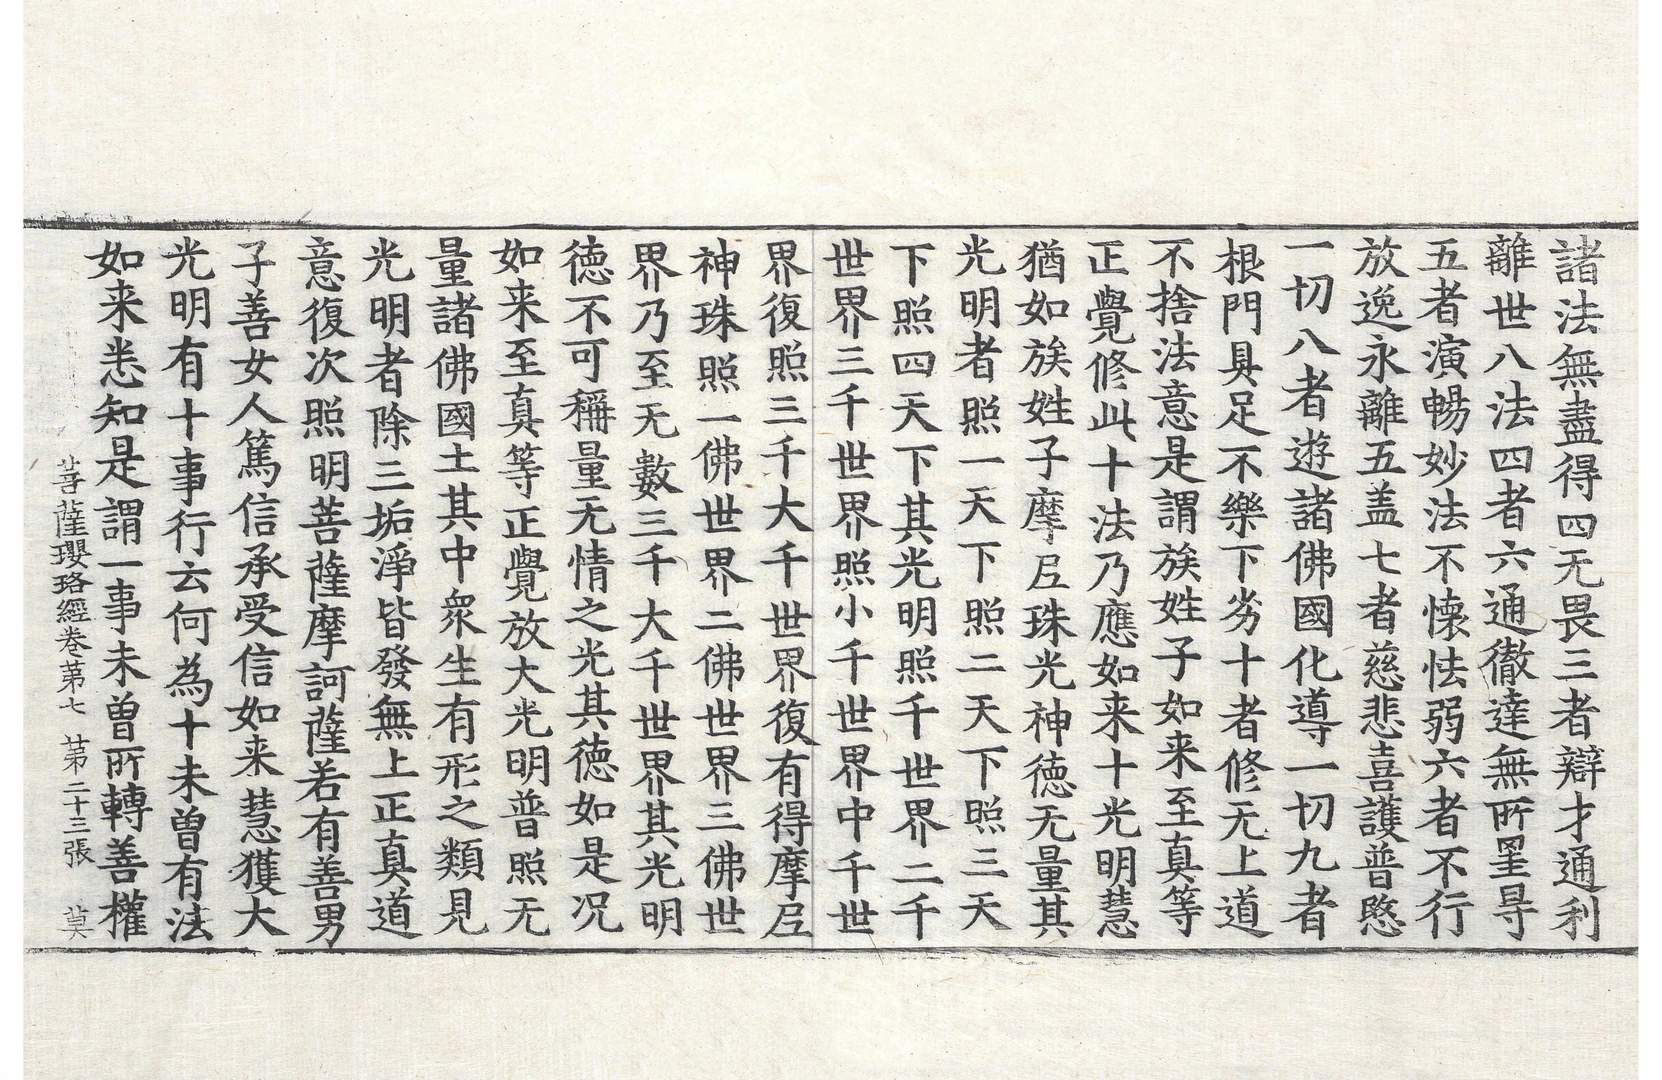 諸法無盡得四无畏三者辯才通利
離世八法四者六通徹達無所罣㝵
五者演暢妙法不懷怯弱六者不行
放逸永離五盖七者慈悲喜護普愍
一切八者遊諸佛國化導一切九者
根門具足不樂下劣十者修无上道
不捨法意是謂族姓子如来至真等
正覺修此十法乃應如来十光明慧
猶如族姓子摩𡰱珠光神德无量其
光明者照一天下照二天下照三天
下照四天下其光明照千世界二千
世界三千世界照小千世界中千世
界復照三千大千世界復有得摩𡰱
神珠照一佛世界二佛世界三佛世
界乃至无數三千大千世界其光明
德不可稱量无情之光其德如是况
如来至真等正覺放大光明普照无
量諸佛國土其中衆生有形之類見
光明者除三垢淨皆發無上正真道
意復次照明菩薩摩訶薩若有善男
子善女人篤信承受信如来慧獲大
光明有十事行云何為十未曽有法
如来悉知是謂一事未曽所轉善權
菩薩瓔珞經卷第七 第二十三張 莫